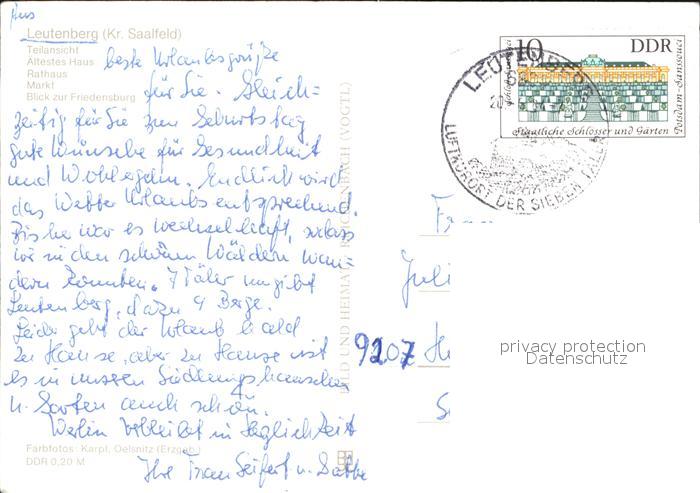 Aus
Leutenberg (Kr. Saalfeld)
Teilansicht
Ältestes Haus beste Urlaubsgrüße
Rathaus
Markt für Sie. Gleich=
Blick zur Friedensburg
zeitig für Sie zum Geburtstag
gute Wünsche für Gesundheit
und Wohlergehn. Endlich wird
das Wetter Urlaubsentsprechend.
Bis her war es wechselhaft, sodass
wir in den schönen Wäldern wan=
dern konnten. 7 Täler umgibt
Leutenberg, dazu 9 Berge.
Leider geht der Urlaub bald
zu Hause, aber zu Hause ist
es in unserem Siedlungshäuschen
u. Garten auch schön.
verbleibt in Herzlichkeit
Farbfotos: Karpf, Oelsnitz (Erzgeb.)
DDR 0,20 M
Ihre Frau Seifert u. Gatte
BILD UND HEIMAT REICHENBACH (VOGTL)
10 DDR
Potsdam-Sanssouci
Staatliche Schlösser und Gärten
LEUTENBERG
LUFTKURORT DER SIEBEN TÄLER
Fr
Juli
9207 H
S
privacy protection
Datenschutz